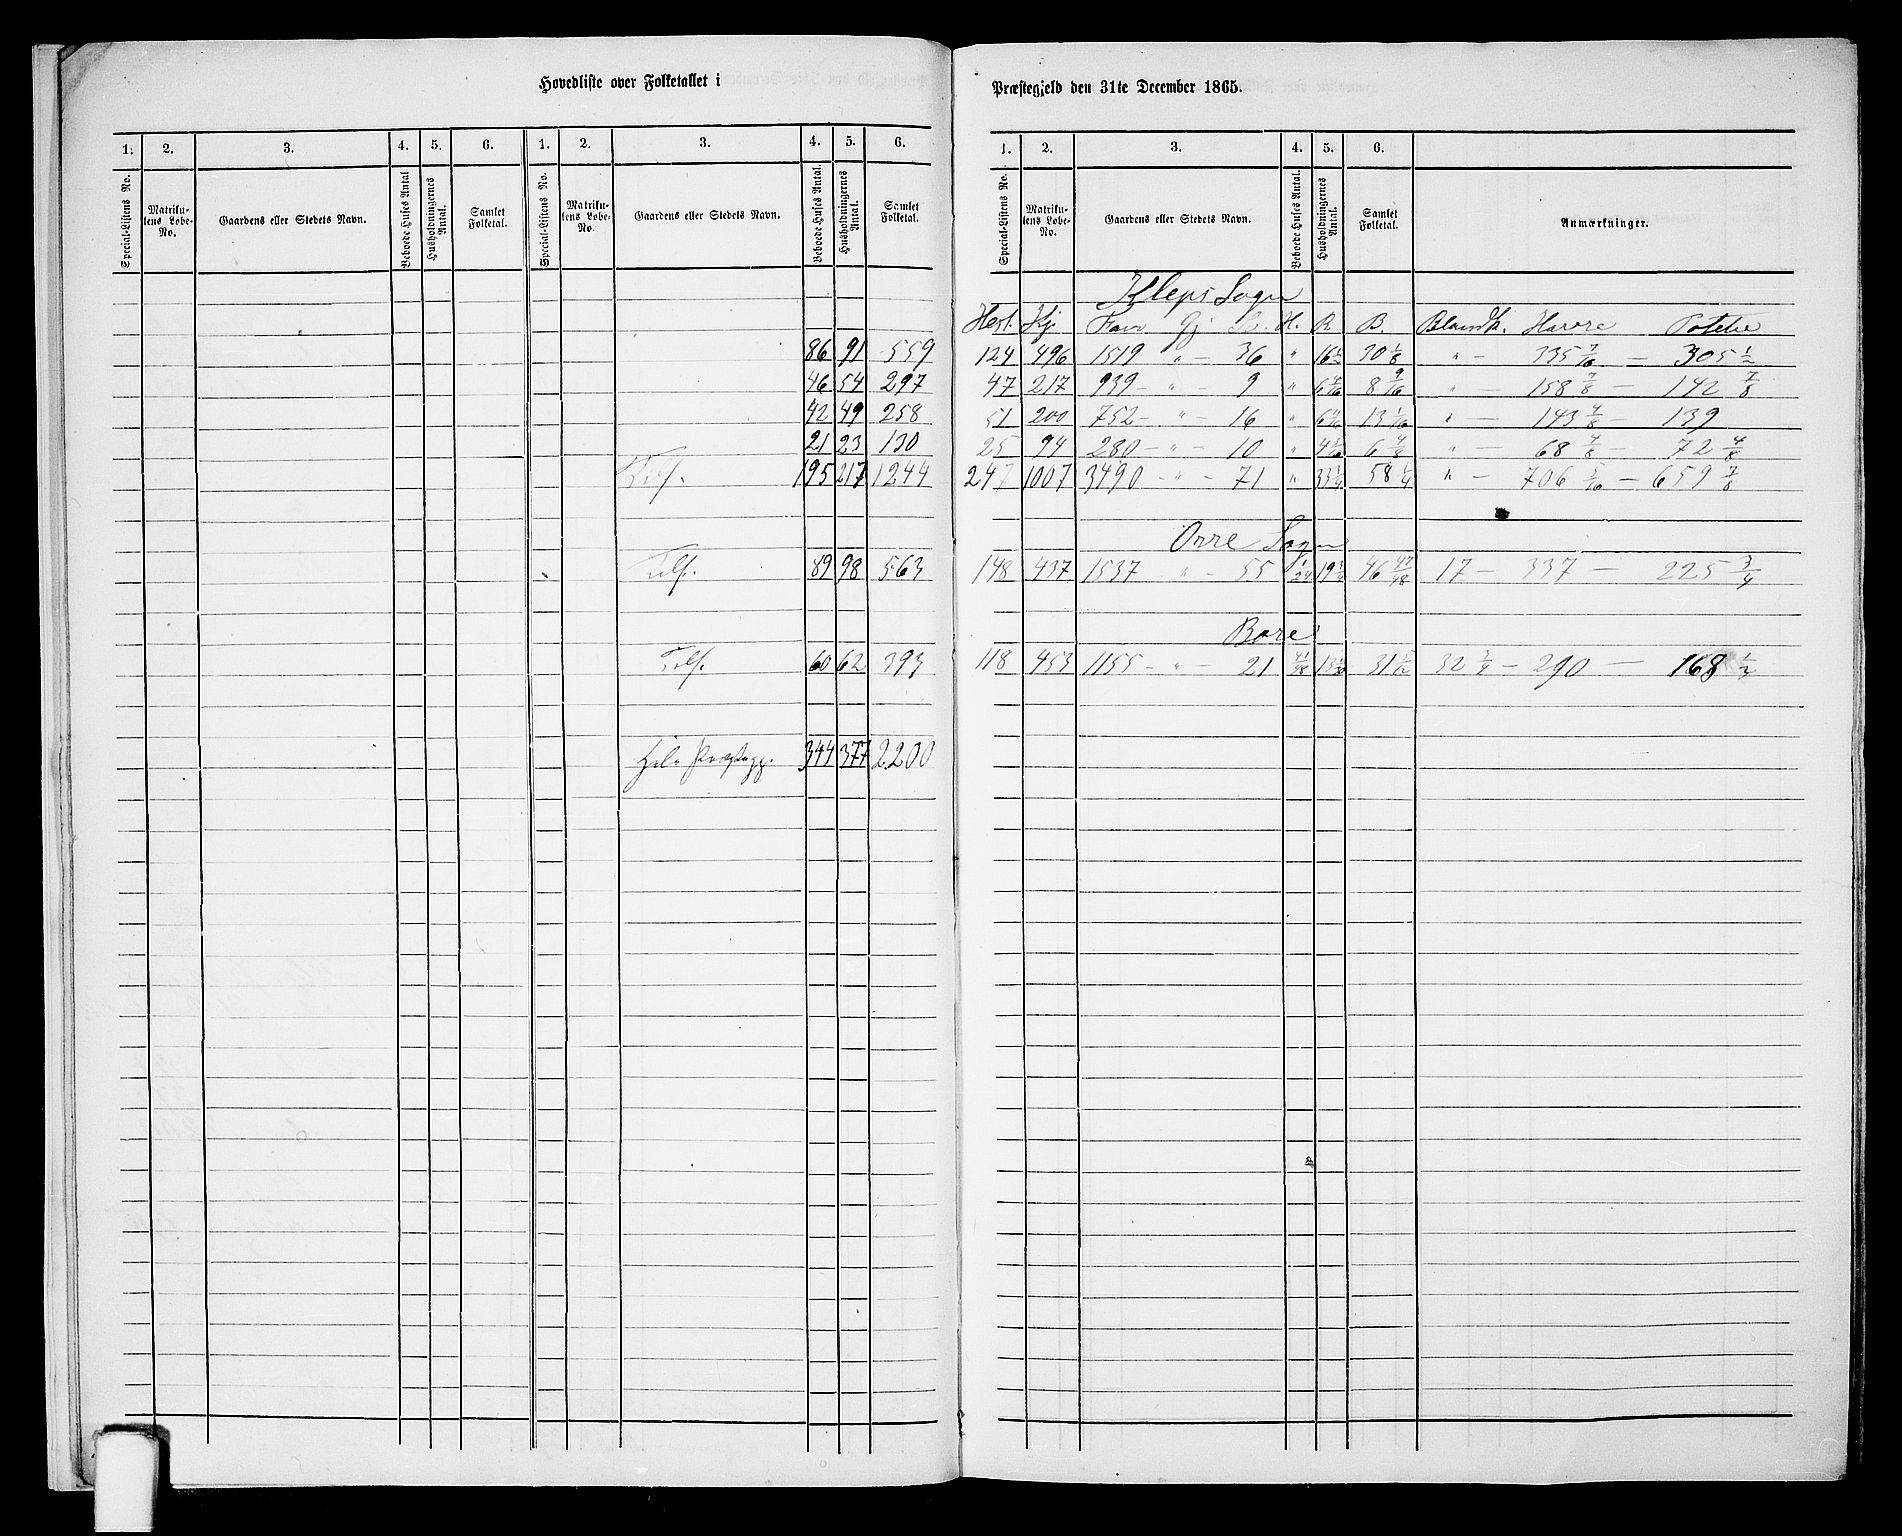 Hovedliste over Folketallet i
1. 2. 3. 4. 5. 6. 1. 2. 3. 4. 5. 6.
Special-Listens No. Matrikulens Løbe-No. Gaardens eller Stedets Navn. Beboede Huses Antal Husholdningernes Antal. Samlet Folketal. Special-Listens No. Matrikulens Løbe-No. Gaardens eller Stedets Navn. Beboede Huses Antal. Husholdningernes Antal. Samlet Folketal.
86 91 559
46 54 297
42 49 258
21 23 130
195 217 1244
89 98 563
60 62 393
Hele Præstegj. 344 377 2200
Præstegjeld den 31te December 1865.
1. 2. 3. 4. 5. 6.
Special-Listens No. Matrikulens Løbe-No. Gaardens eller Stedets Navn. Beboede Huses Antal. Husholdningernes Antal. Samlet Folketal. Anmærkninger.
Kleps Sogn
Hest. Kj. Faar Gj. Sv. H. R B. Blandk. Havre Potetes
124 496 1519 " – 36 " 16 1/2 30 1/8 " – 335 7/16 – 305 1/2
47 217 939 – " – 9 " 8 9/16 " – 158 7/8 – 142 7/8
51 200 752 – " – 16 " 13 1/16 " – 143 4/8 – 139
25 94 280 – " – 10 " 6 4/8 " – 68 4/8 – 72 4/8
247 1007 3490 – " – 71 " 33 1/4 58 1/4 " – 706 5/16 – 659 7/8
Orre Sogn
148 437 1537 " – 55 1/24 19 3/4 46 47/48 17 – 337 – 225 3/4
Bore
118 453 1155 – " – 21 41/48 31 1/12 32 3/4 – 290 – 168 1/2